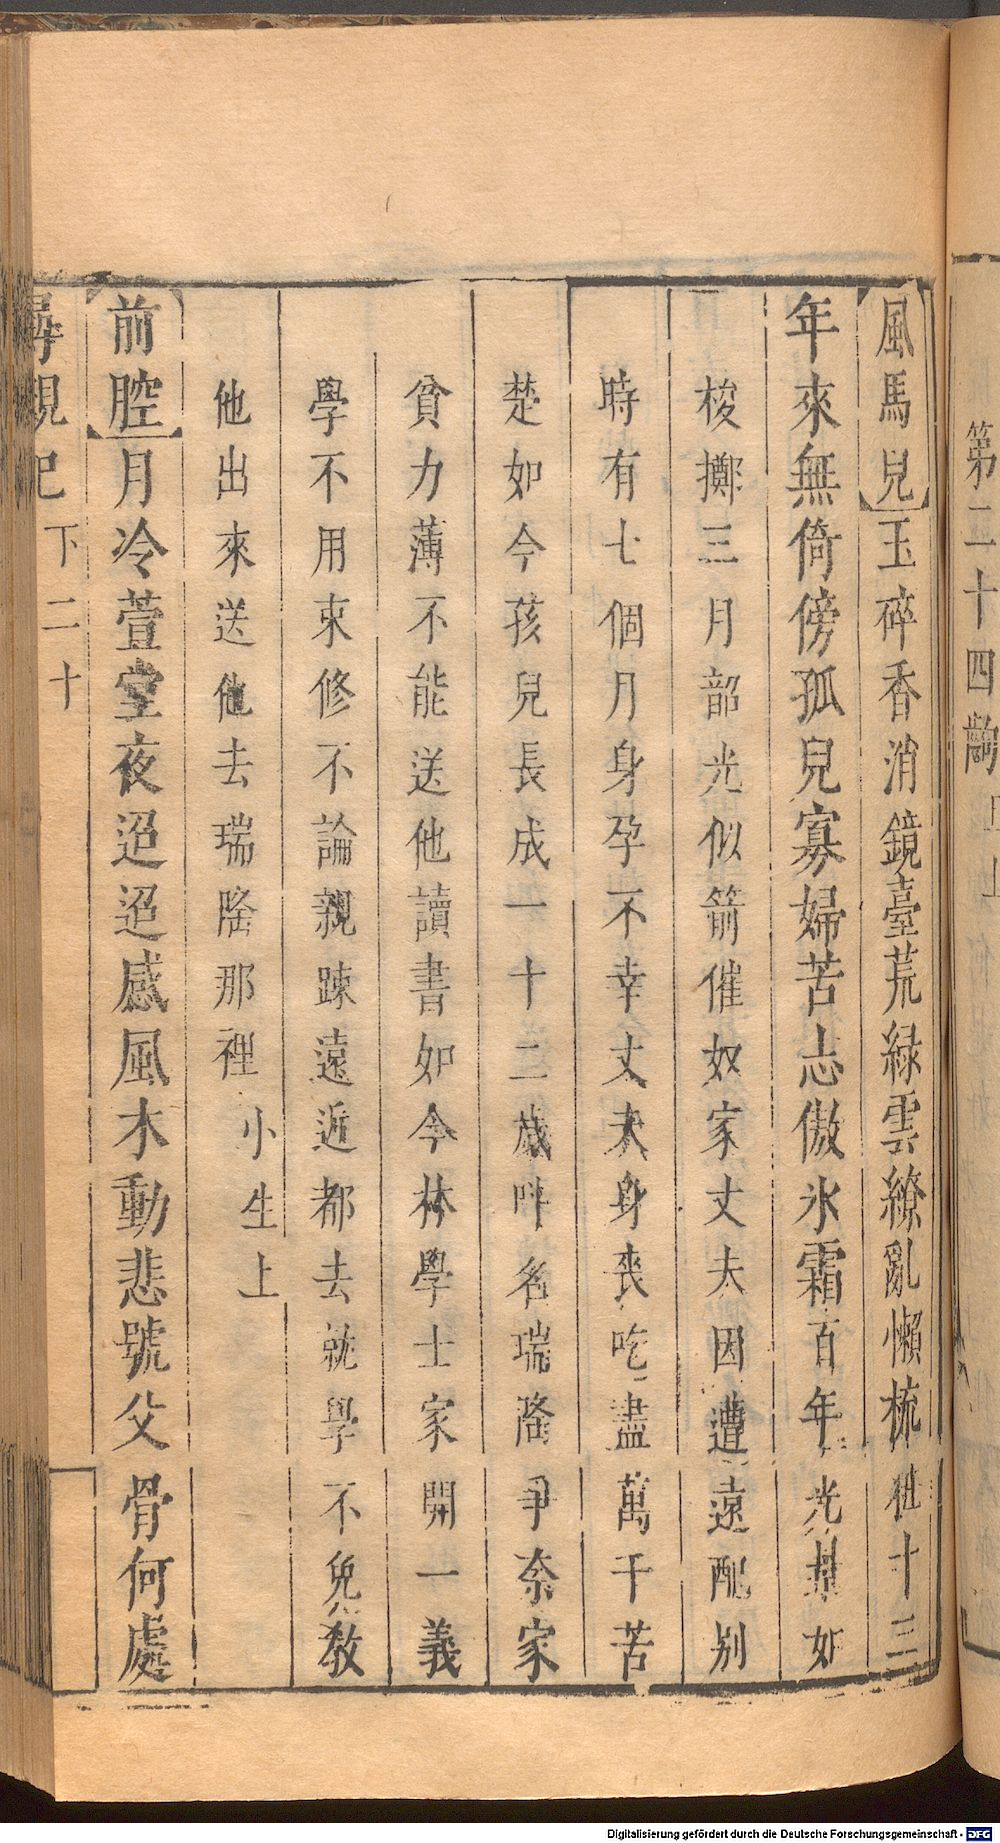 第二十四齣 旦上
風馬兒玉碎香消鏡臺荒緑雲繚亂懶梳粧十三
年來無倚傍孤兒寡婦苦志傲氷霜百年光景如
梭擲三月韶光似箭催奴家丈夫因遭遠配別
時有七個月身孕不幸丈夫身喪吃盡萬千苦
楚如今孩兒長成一十二歲呌名瑞隆爭奈家
貧力薄不能送他讀書如今林學士家開一義
學不用束修不論親踈遠近都去就學不免教
他出來送他去瑞隆那裡 小生上
前腔月冷萱堂夜迢迢感風木動悲號父骨何處
尋親記 下 二十
Digitalisierung gefördert durch die Deutsche Forschungsgemeinschaft - DFG